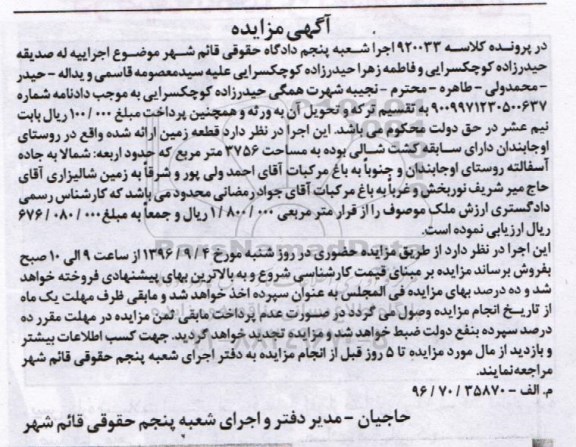 آگهی مزایده
در پرونده کلاسه ۹۲۰۰۳۳ اجرا شعبه پنجم دادگاه حقوقی قائم شهر موضوع اجراییه له صدیقه
حیدرزاده کوچکسرایی و فاطمه زهرا حیدرزاده کوچکسرایی علیه سیدمعصومه قاسمی و یداله - حیدر
- محمدولی - طاهره - محترم - نجیبه شهرت همگی حیدرزاده کوچکسرایی به موجب دادنامه شماره
۹۰۰۹۹۷۱۲۳۰۵۰۰۶۳۷ به تقسیم ترکه و تحویل آن به ورثه و همچنین پرداخت مبلغ ۱۰۰/۰۰۰ ریال بابت
نیم عشر در حق دولت محکوم می باشد. این اجرا در نظر دارد قطعه زمین ارائه شده واقع در روستای
اوجابندان دارای سابقه کشت شالی بوده به مساحت ۳۷۵۶ متر مربع که حدود اربعه: شمالا به جاده
آسفالته روستای اوجابندان و جنوباً به باغ مرکبات آقای احمد ولی پور و شرقاً به زمین شالیزاری آقای
حاج میر شریف نوربخش و غرباً به باغ مرکبات آقای جواد رمضانی محدود می باشد که کارشناس رسمی
دادگستری ارزش ملک موصوف را از قرار متر مربعی ۱/۸۰۰/۰۰۰ ریال و جمعاً به مبلغ ۶۷۶/۰۸۰/۰۰۰
ریال ارزیابی نموده است.
این اجرا در نظر دارد از طریق مزایده حضوری در روز شنبه مورخ ۱۳۹۶/۹/۴ از ساعت ۹ الی ۱۰ صبح
بفروش برساند مزایده بر مبنای قیمت کارشناسی شروع و به بالاترین بهای پیشنهادی فروخته خواهد
شد و ده درصد بهای مزایده فی المجلس به عنوان سپرده اخذ خواهد شد و مابقی ظرف مهلت یک ماه
از تاریخ انجام مزایده وصول می گردد در صورت عدم پرداخت مابقی ثمن مزایده در مهلت مقرر ده
درصد سپرده بنفع دولت ضبط خواهد شد و مزایده تجدید خواهد گردید. جهت کسب اطلاعات بیشتر
و بازدید از مال مورد مزایده تا ۵ روز قبل از انجام مزایده به دفتر اجرای شعبه پنجم حقوقی قائم شهر
مراجعه نمایند.
م. الف - ۹۶/۷۰/۳۵۸۷۰
حاجیان - مدیر دفتر و اجرای شعبه پنجم حقوقی قائم شهر